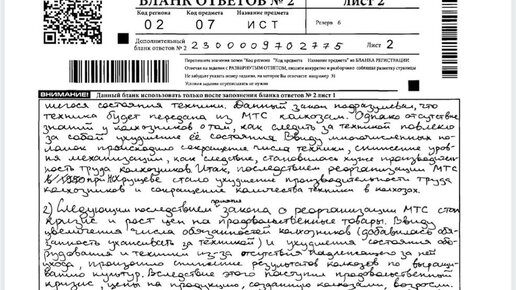 БЛАНК ОТВЕТОВ № 2
ЛИСТ 2
Код региона Код предмета Название предмета
02 07 ИСТ
Резерв 6
Дополнительный
бланк ответов № 2
2300009702775 Лист 2
Перепишите значения полей "Код региона", "Код предмета", "Название предмета" из БЛАНКА РЕГИСТРАЦИИ
Отвечая на задания с РАЗВЕРНУТЫМ ОТВЕТОМ, пишите аккуратно и разборчиво, соблюдая разметку страницы
Не забудьте указать номер задания, на которое Вы отвечаете
ВНИМАНИЕ!
Данный бланк использовать только после заполнения бланка ответов № 2 лист 1
шегося состояния техники. Данный закон подразумевал, что
техника будет передана из МТС колхозам. Однако отсутствие
знаний у колхозников о том, как следить за техникой повлекло
за собой ухудшение её состояния. Ввиду многочисленных по-
ломок происходило сокращение числа техники, снижение уров-
ня механизации, как следствие, становилась хуже производитель-
ность труда колхозников. Итак, последствием реорганизации МТС
при Хрущеве стало ухудшение производительности труда
колхозников и сокращение количества техники в колхозах.
2) Следующим последствием принятия закона о реорганизации МТС стал
кризис и рост цен на продовольственные товары. Ввиду
увеличения числа обязанностей колхозников (добавилась обя-
занность ухаживать за техникой) и ухудшения состояния обо-
рудования и техники из-за отсутствия надлежащего за ней
ухода, произошло снижение результатов колхозов по выращи-
ванию культур. Вследствие этого наступил продовольственный
кризис, цены на продукцию, созданную колхозами, возросли.